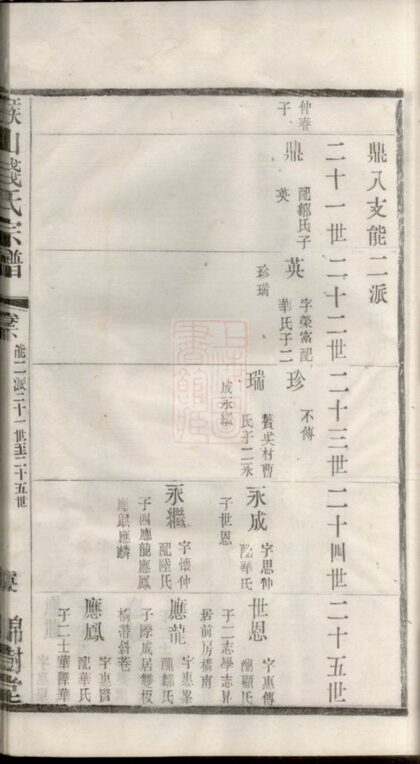 鼎八支能二派
二十一世 二十二世 二十三世 二十四世 二十五世
仲春子
鼎 配鄒氏子
英
英 字榮富配
華氏子二
珍 瑞
珍 不傳
瑞 贅奚村曹
氏子二永
成 永繼
永成 字思仲
配華氏
子世恩
永繼 字懷仲
配陸氏
子四應龍應鳳
應麒應麟
世恩 字惠傳
配顧氏
子二志學志昇
居前房橋南
應龍 字惠峯
配鄒氏
子際成居雙板
橋帶斜巷
應鳳 字惠賢
配華氏
子二士華際華
山錢氏宗譜
卷六
能二派二十一世至二十五世
錦樹堂
上海圖書館藏